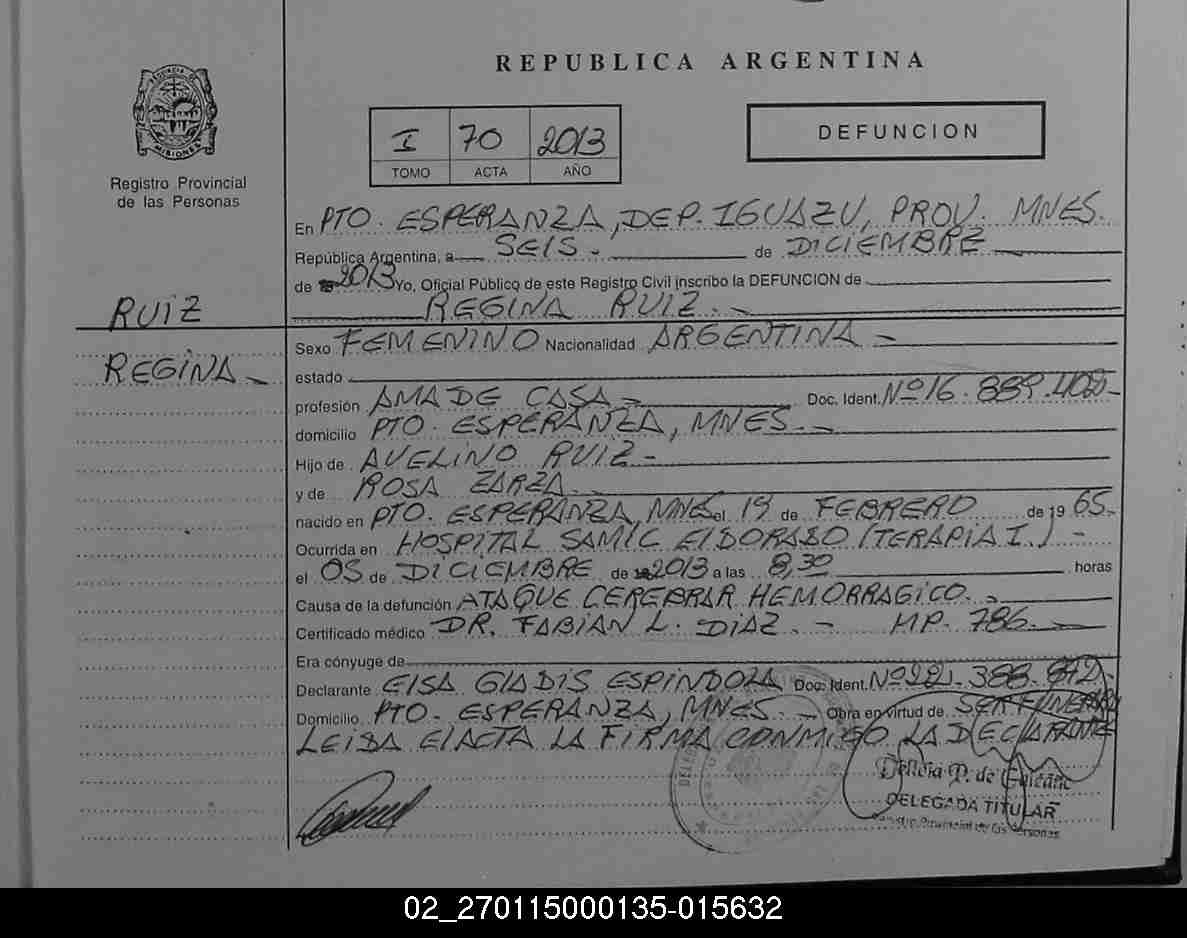 REPUBLICA ARGENTINA
PROVINCIA DE
MISIONES
Registro Provincial
de las Personas
I 70 2013
TOMO ACTA AÑO
DEFUNCION
En PTO. ESPERANZA, DEP. IGUAZU, PROV. MNES.
República Argentina, a SEIS. de DICIEMBRE
de 2013 Yo, Oficial Público de este Registro Civil inscribo la DEFUNCION de
REGINA RUIZ.
RUIZ
REGINA
Sexo FEMENINO Nacionalidad ARGENTINA
estado
profesión AMA DE CASA Doc. Ident. Nº 16.889.402
domicilio PTO. ESPERANZA, MNES.
Hijo de AVELINO RUIZ
y de ROSA ZARZA.
nacido en PTO. ESPERANZA, MNES el 19 de FEBRERO de 19 65.
Ocurrida en HOSPITAL SAMIC ElDORADO (TERAPIA I.)
el 05 de DICIEMBRE de 2013 a las 8,30 horas
Causa de la defunción ATAQUE CEREBRAR HEMORRAGICO.
Certificado médico DR. FABIAN L. DIAZ. MP. 786.
Era cónyuge de
Declarante ElSA GlADIS ESPINDOLA Doc. Ident. Nº 22.388.842
Domicilio PTO. ESPERANZA, MNES. Obra en virtud de SER FUNERARIA
LEIDA El ACTA LA FIRMA CONMIGO LA DECLARANTE
DELEGADA TITULAR
Registro Provincial de las Personas
02_270115000135-015632